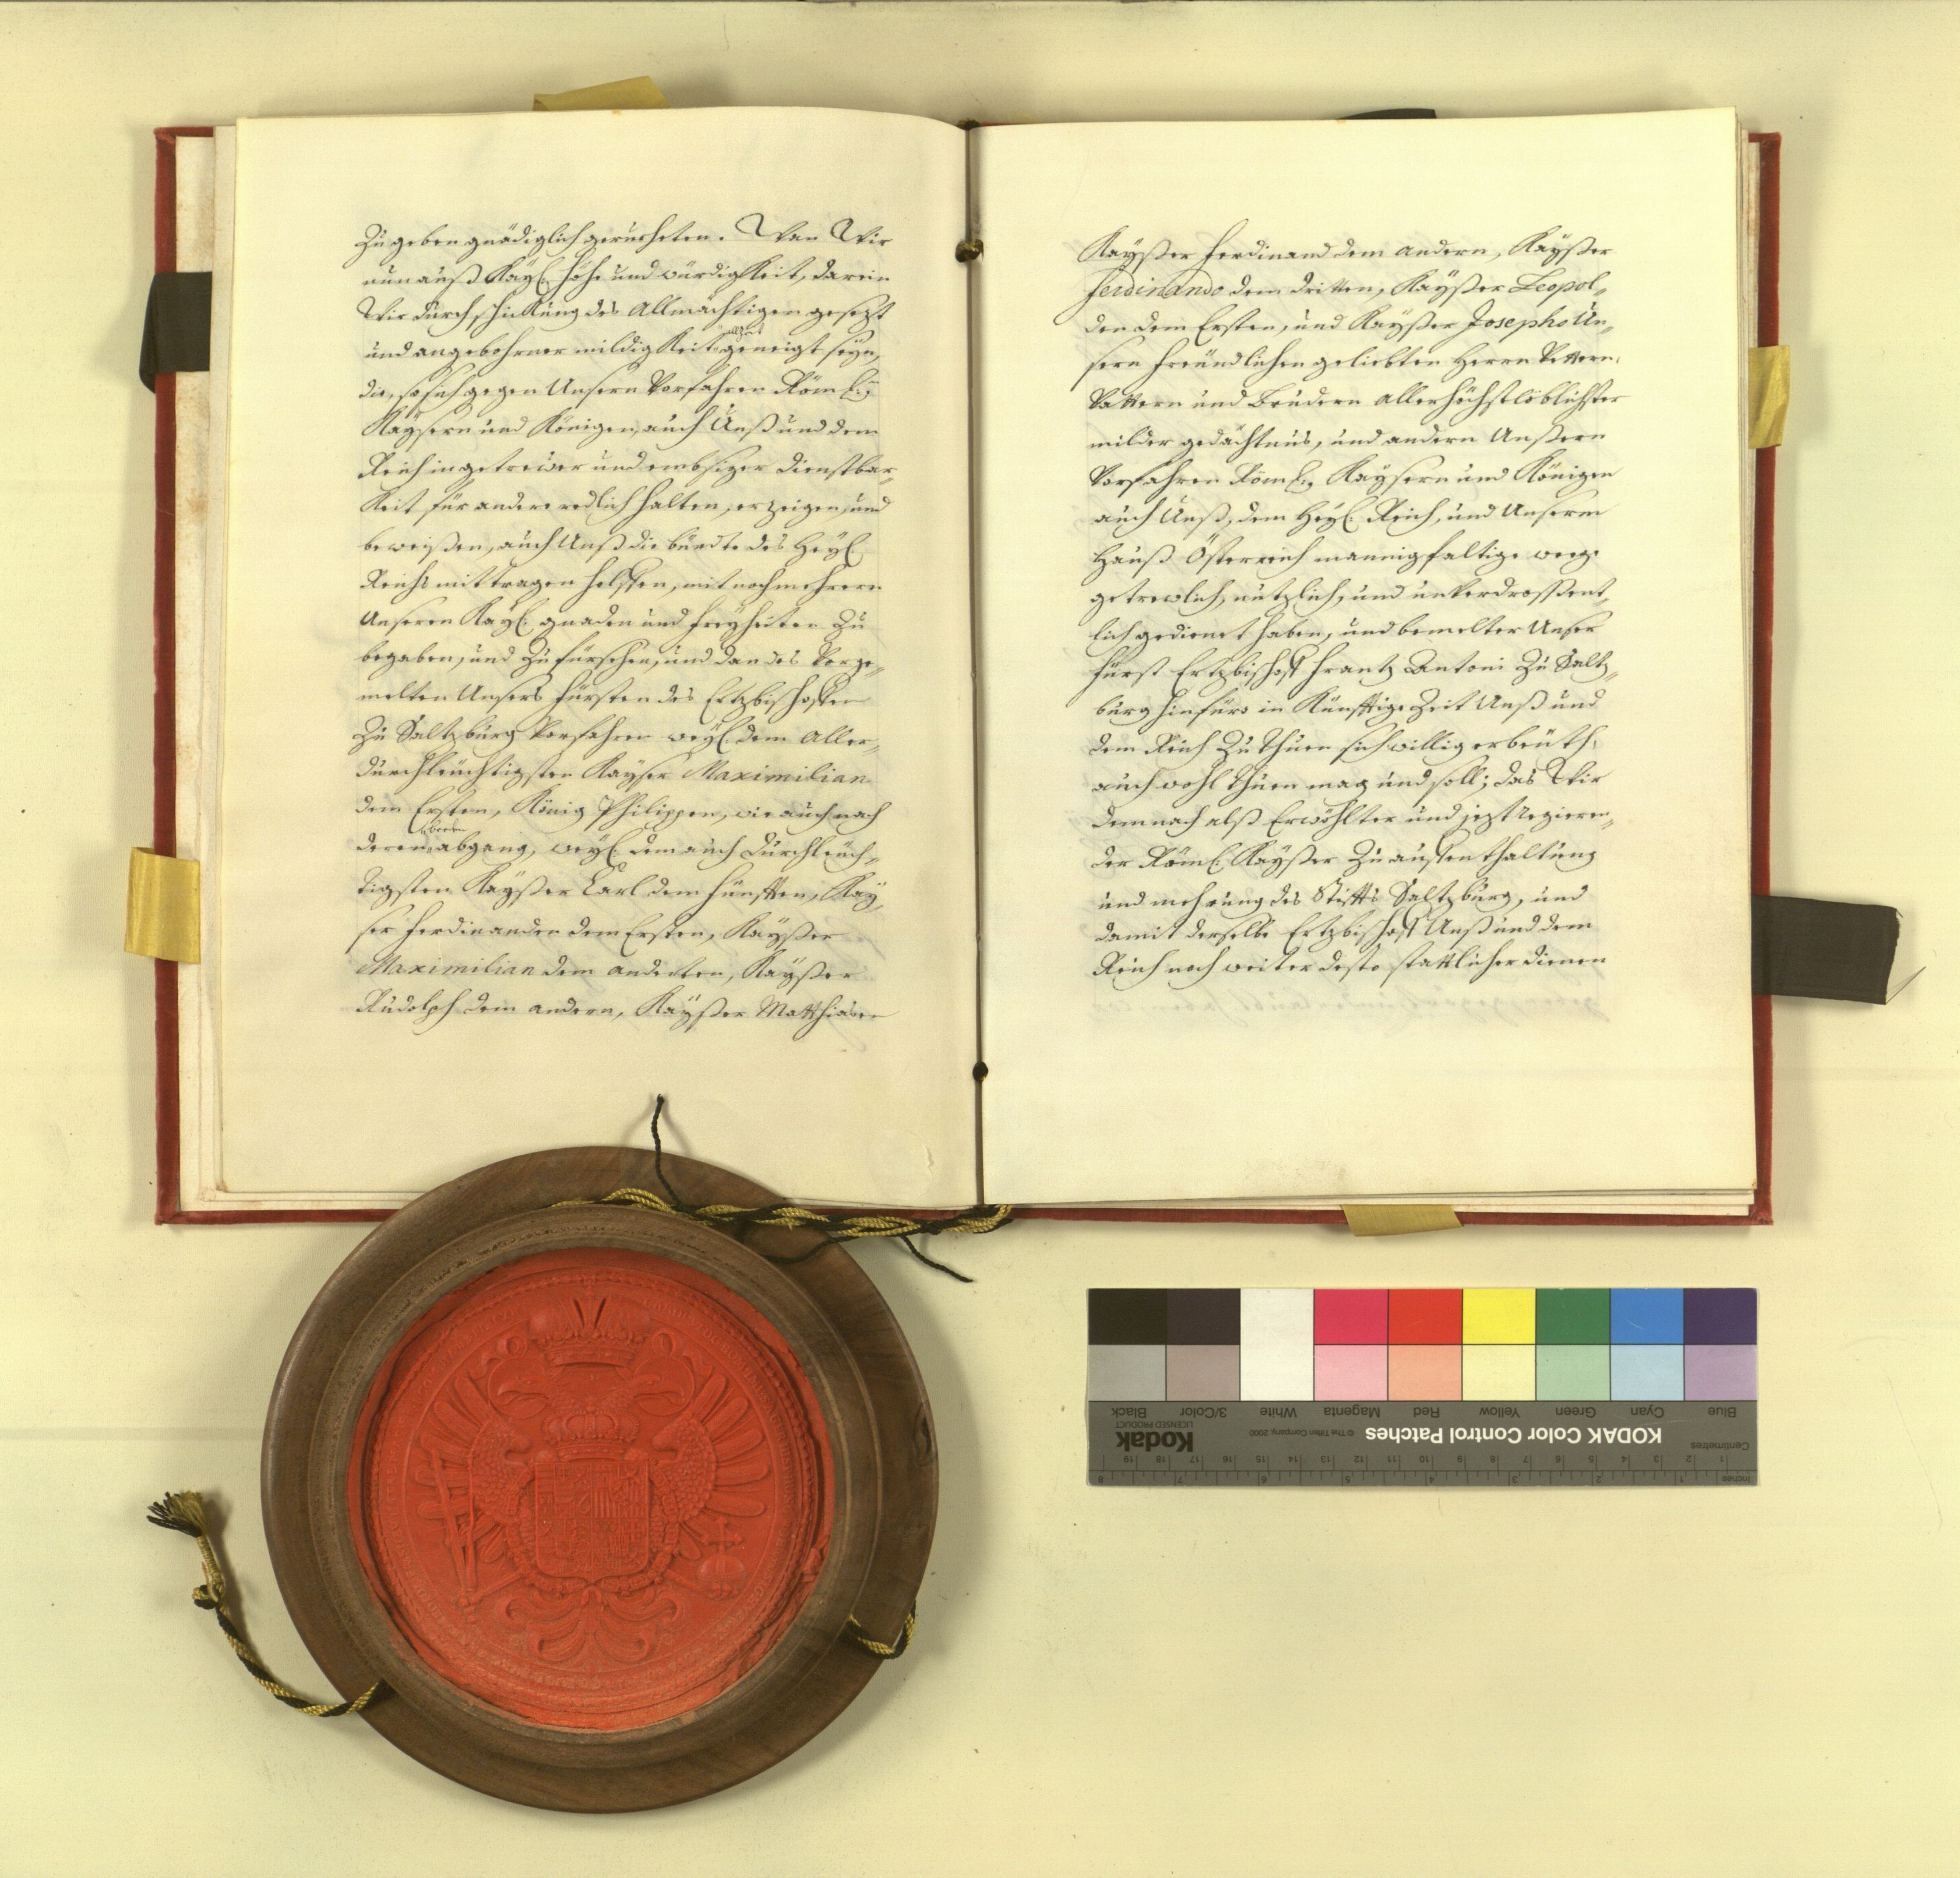 Zu geben gnädiglich geruheten. Wan Wir
nun auß Kay: höhe und würdigkeit, darein
Wir durch schickung des Allmächtigen gesezt
und angebohrner mildigkeit allzeit geneigt seyn,
die, so sich gegen Unsern Vorfahren Röm:
Kaysern und Königen, auch Unß und dem
Reich in getreüer und embsiger dienstbar-
keit für andere redlich halten, erzeigen, und
beweißen, auch Unß die bürdte des Heyl:
Reichs mit tragen helffen, mit noch mehrern
Unseren Kay: gnaden und freyheiten zu
begaben, und zu fürsehen, und dan des Vorge-
melten Unsers fürsten des Ertzbischoffen
Zu Saltzburg Vorfahren weyl: dem Aller-
durchleüchtigsten Kayser Maximilian
dem Ersten, König Philippen, wie auch nach
deren abgang, weyl: dem auch durchleüch-
tigsten Kayßer Carl dem fünfften, Kay-
ser ferdinanden dem Ersten, Kayßer
Maximilian dem anderten, Kayßer
Rudolph dem andern, Kayßer Matthiaßen
Kayßer ferdinand dem andern, Kayßer
ferdinando dem dritten, Kayßer Leopol-
den dem Ersten, und Kayßer Josepho Un-
sern freündlichen geliebten Herrn Vettern,
Vattern und Brudern allerhöchstlöblichster
milder gedächtnus, und andern Unßern
Vorfahren Röm: Kaysern und Königen
auch Unß, dem Heyl: Reich, und Unserm
Hauß Österreich mannigfaltige weege
getrewlich, nutzlich, und unverdrossent-
lich gedienet haben, und bemelter Unser
fürst Ertzbischoff Frantz Antoni zu Saltz-
burg hinfüro in künfftige Zeit Unß und
dem Reich zu thuen sich willig erbeüth,
auch wohl thuen mag und soll; das Wir
demnach alß Erwöhlter und jezt regieren-
der Röm: Kayßer zu auffenthaltung
und mehrung des Stiffts Saltzburg, und
damit derselbe Ertzbischoff Unß und dem
Reich noch weiter desto stattlicher dienen
Blue
Cyan
Green
Yellow
Red
Magenta
White
3/Color
Black
KODAK Color Control Patches
© The Tiffen Company, 2000
Kodak
LICENSED PRODUCT
Centimetres
1 2 3 4 5 6 7 8 9 10 11 12 13 14 15 16 17 18 19
Inches
1 2 3 4 5 6 7 8